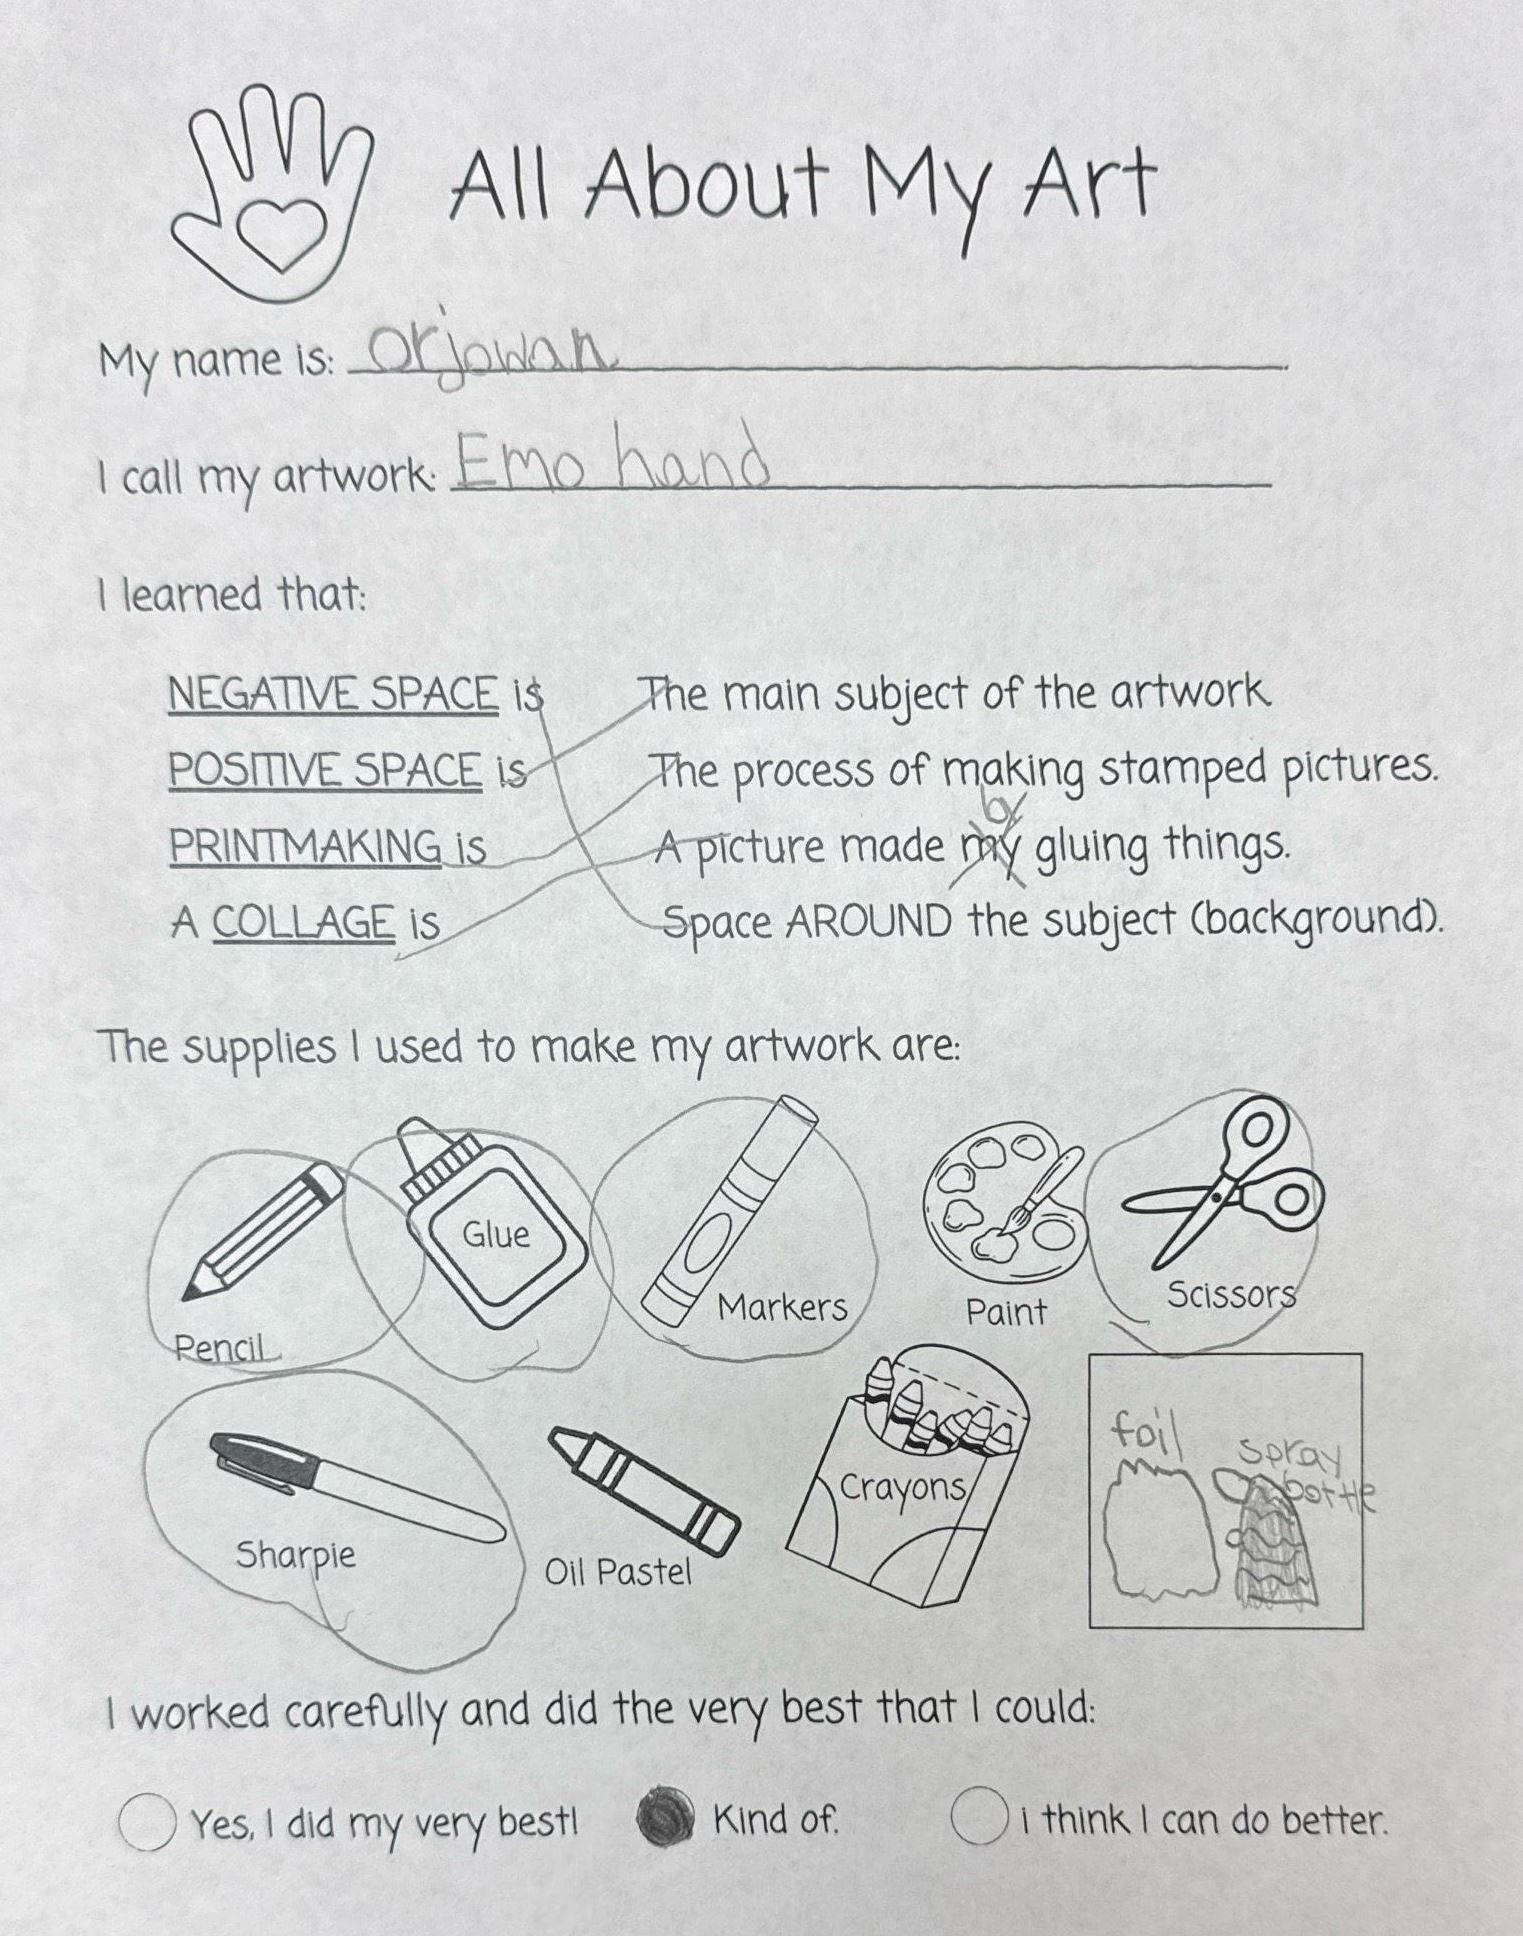 All About My Art
My name is: Orjowan
I call my artwork: Emo hand
I learned that:
NEGATIVE SPACE is The main subject of the artwork
POSITIVE SPACE is The process of making stamped pictures.
by
PRINTMAKING is A picture made my gluing things.
A COLLAGE is Space AROUND the subject (background).
The supplies I used to make my artwork are:
Glue
Pencil Markers Paint Scissors
foil spray
bottle
Crayons
Sharpie Oil Pastel
I worked carefully and did the very best that I could:
Yes, I did my very best! Kind of. I think I can do better.